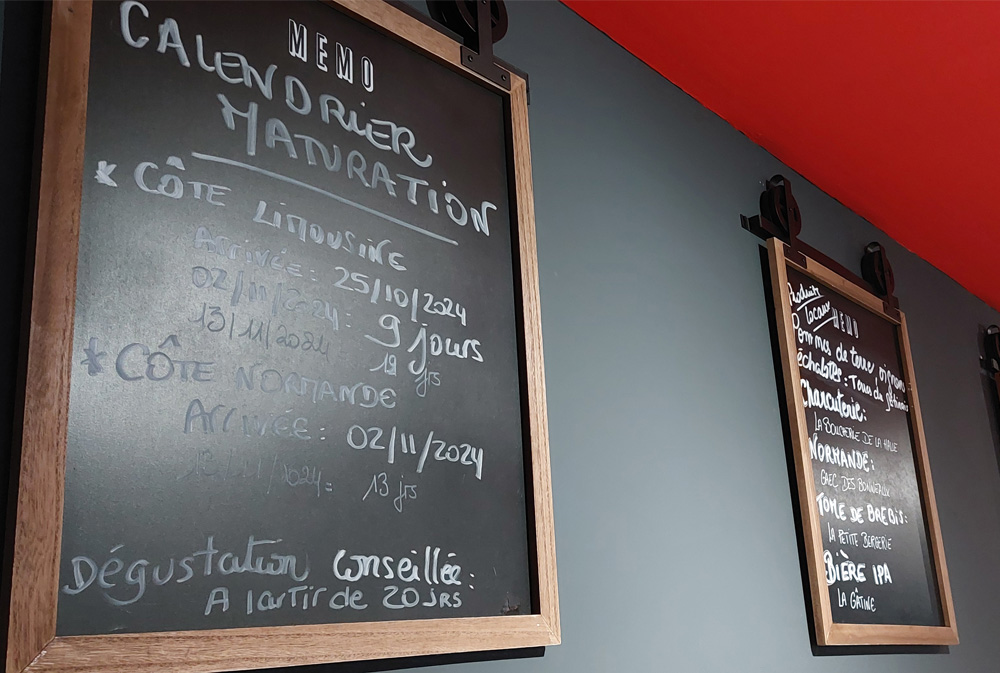 MEMO
CALENDRIER
MATURATION
* CÔTE LIMOUSINE
ARRIVÉE: 25/10/2024
02/11/2024: 9 jours
13/11/2024 19 jrs
* CÔTE NORMANDE
ARRIVÉE: 02/11/2024
13/11/2024= 13 jrs
Dégustation conseillée:
A partir de 20 JRS
Produits
locaux
MEMO
Pommes de terre oignon
échalotes: Terres du
Charcuterie:
LA BOUCHERIE DE LA HALLE
NORMANDE:
GAEC DES BONNEAUX
TOME DE BREBIS:
LA PETITE BERGERIE
BIÈRE IPA
LA GÂTINE